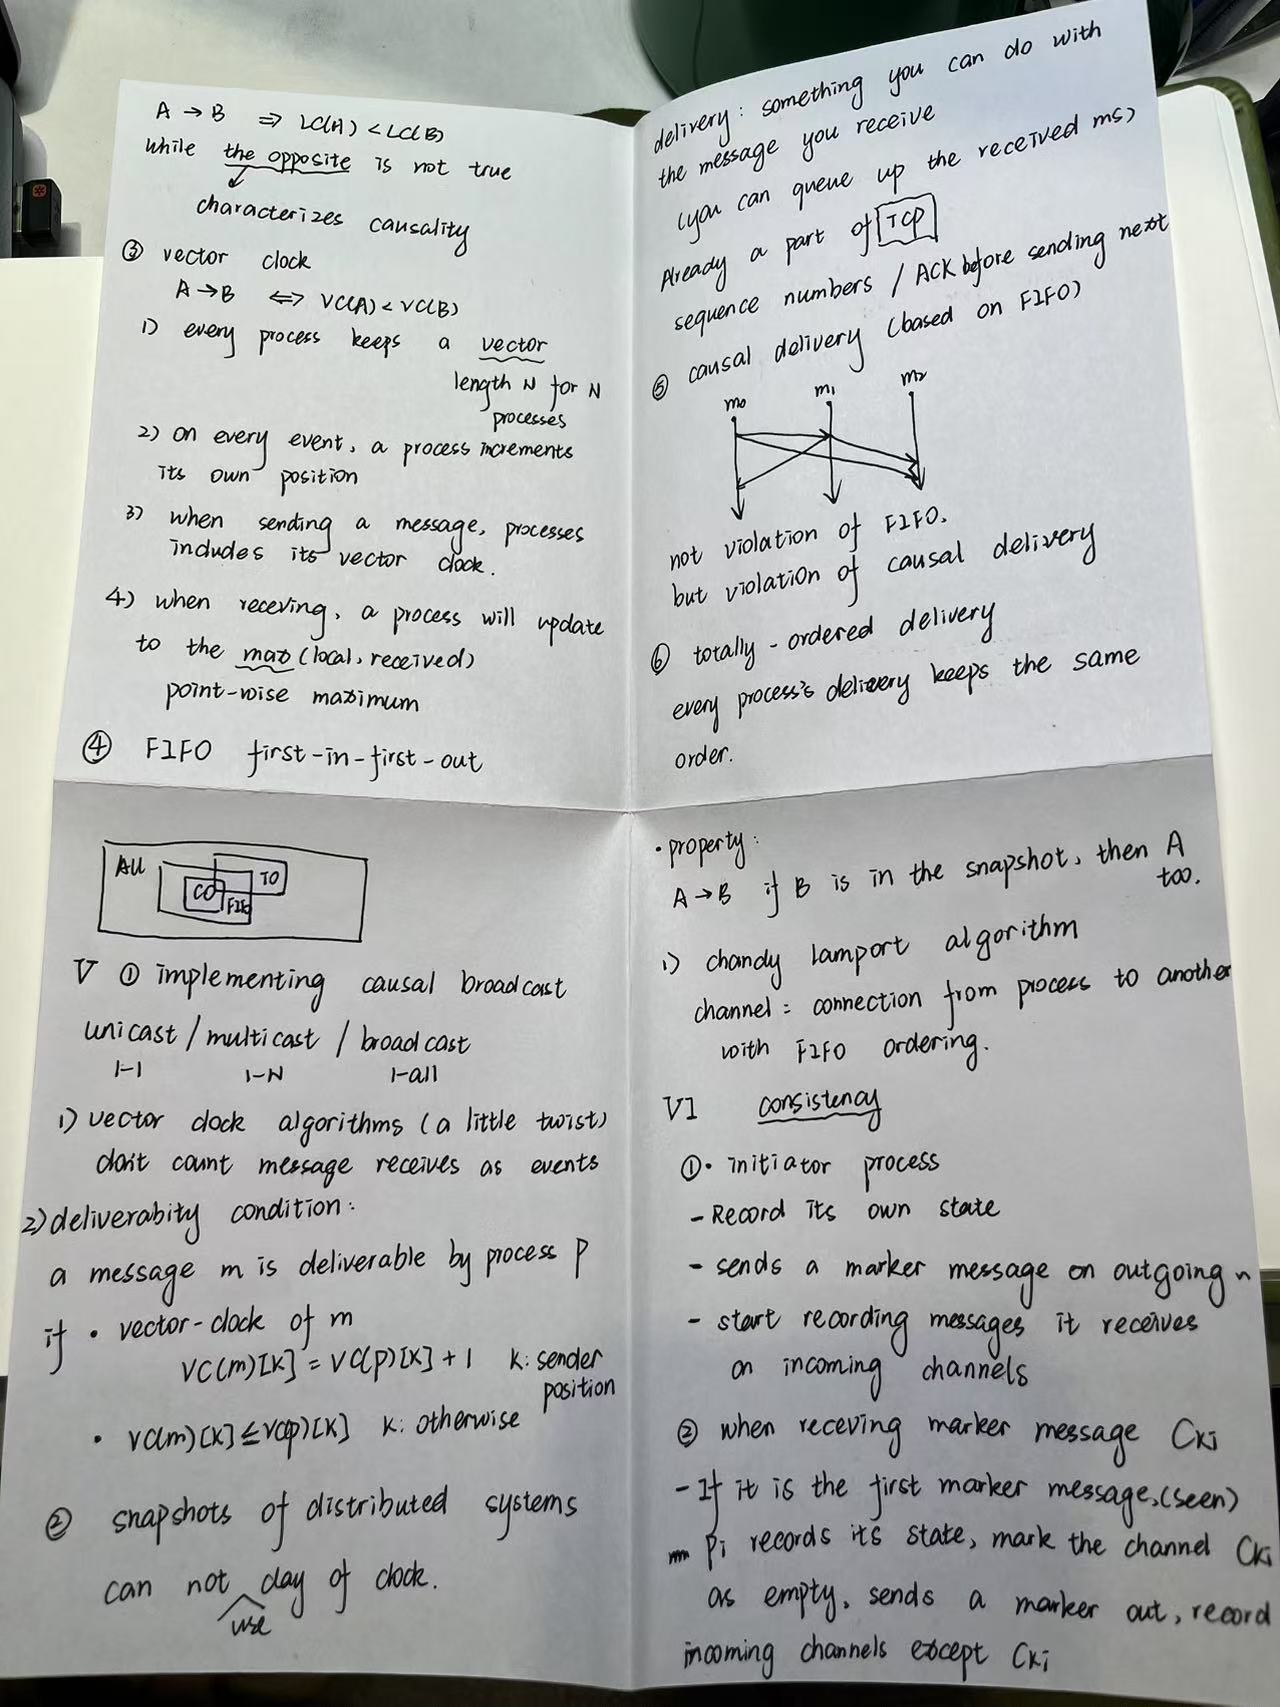 A → B ⇒ LC(A) < LC(B)
while the opposite is not true
characterizes causality
③ vector clock
A→B ⇔ VC(A) < VC(B)
1) every process keeps a vector
length N for N
processes
2) on every event, a process increments
its own position
3) when sending a message, processes
includes its vector clock.
4) when receving, a process will update
to the max (local, received)
point-wise maximum
④ FIFO first-in-first-out
delivery: something you can do with
the message you receive
(you can queue up the received ms)
Already a part of TCP
sequence numbers / ACK before sending next
⑤ causal delivery (based on FIFO)
m0 m1 m2
not violation of FIFO.
but violation of causal delivery
⑥ totally-ordered delivery
every process's delivery keeps the same
order.
All
CO
TO
FIFO
V ① implementing causal broadcast
unicast / multicast / broadcast
1-1 1-N 1-all
1) vector clock algorithms (a little twist)
don't count message receives as events
2) deliverabity condition:
a message m is deliverable by process p
if • vector-clock of m
VC(m)[K] = VC(p)[K] + 1 K: sender
position
• VC(m)[K] ≤ VC(p)[K] K: otherwise
② snapshots of distributed systems
can not day of clock.
use
• property:
A → B if B is in the snapshot, then A
too.
1) chandy lamport algorithm
channel = connection from process to another
with FIFO ordering.
VI consistency
①• initiator process
- Record its own state
- sends a marker message on outgoing n
- start recording messages it receives
on incoming channels
② when receving marker message CKi
- If it is the first marker message, (seen)
Pi records its state, mark the channel CKi
as empty, sends a marker out, record
incoming channels except CKi